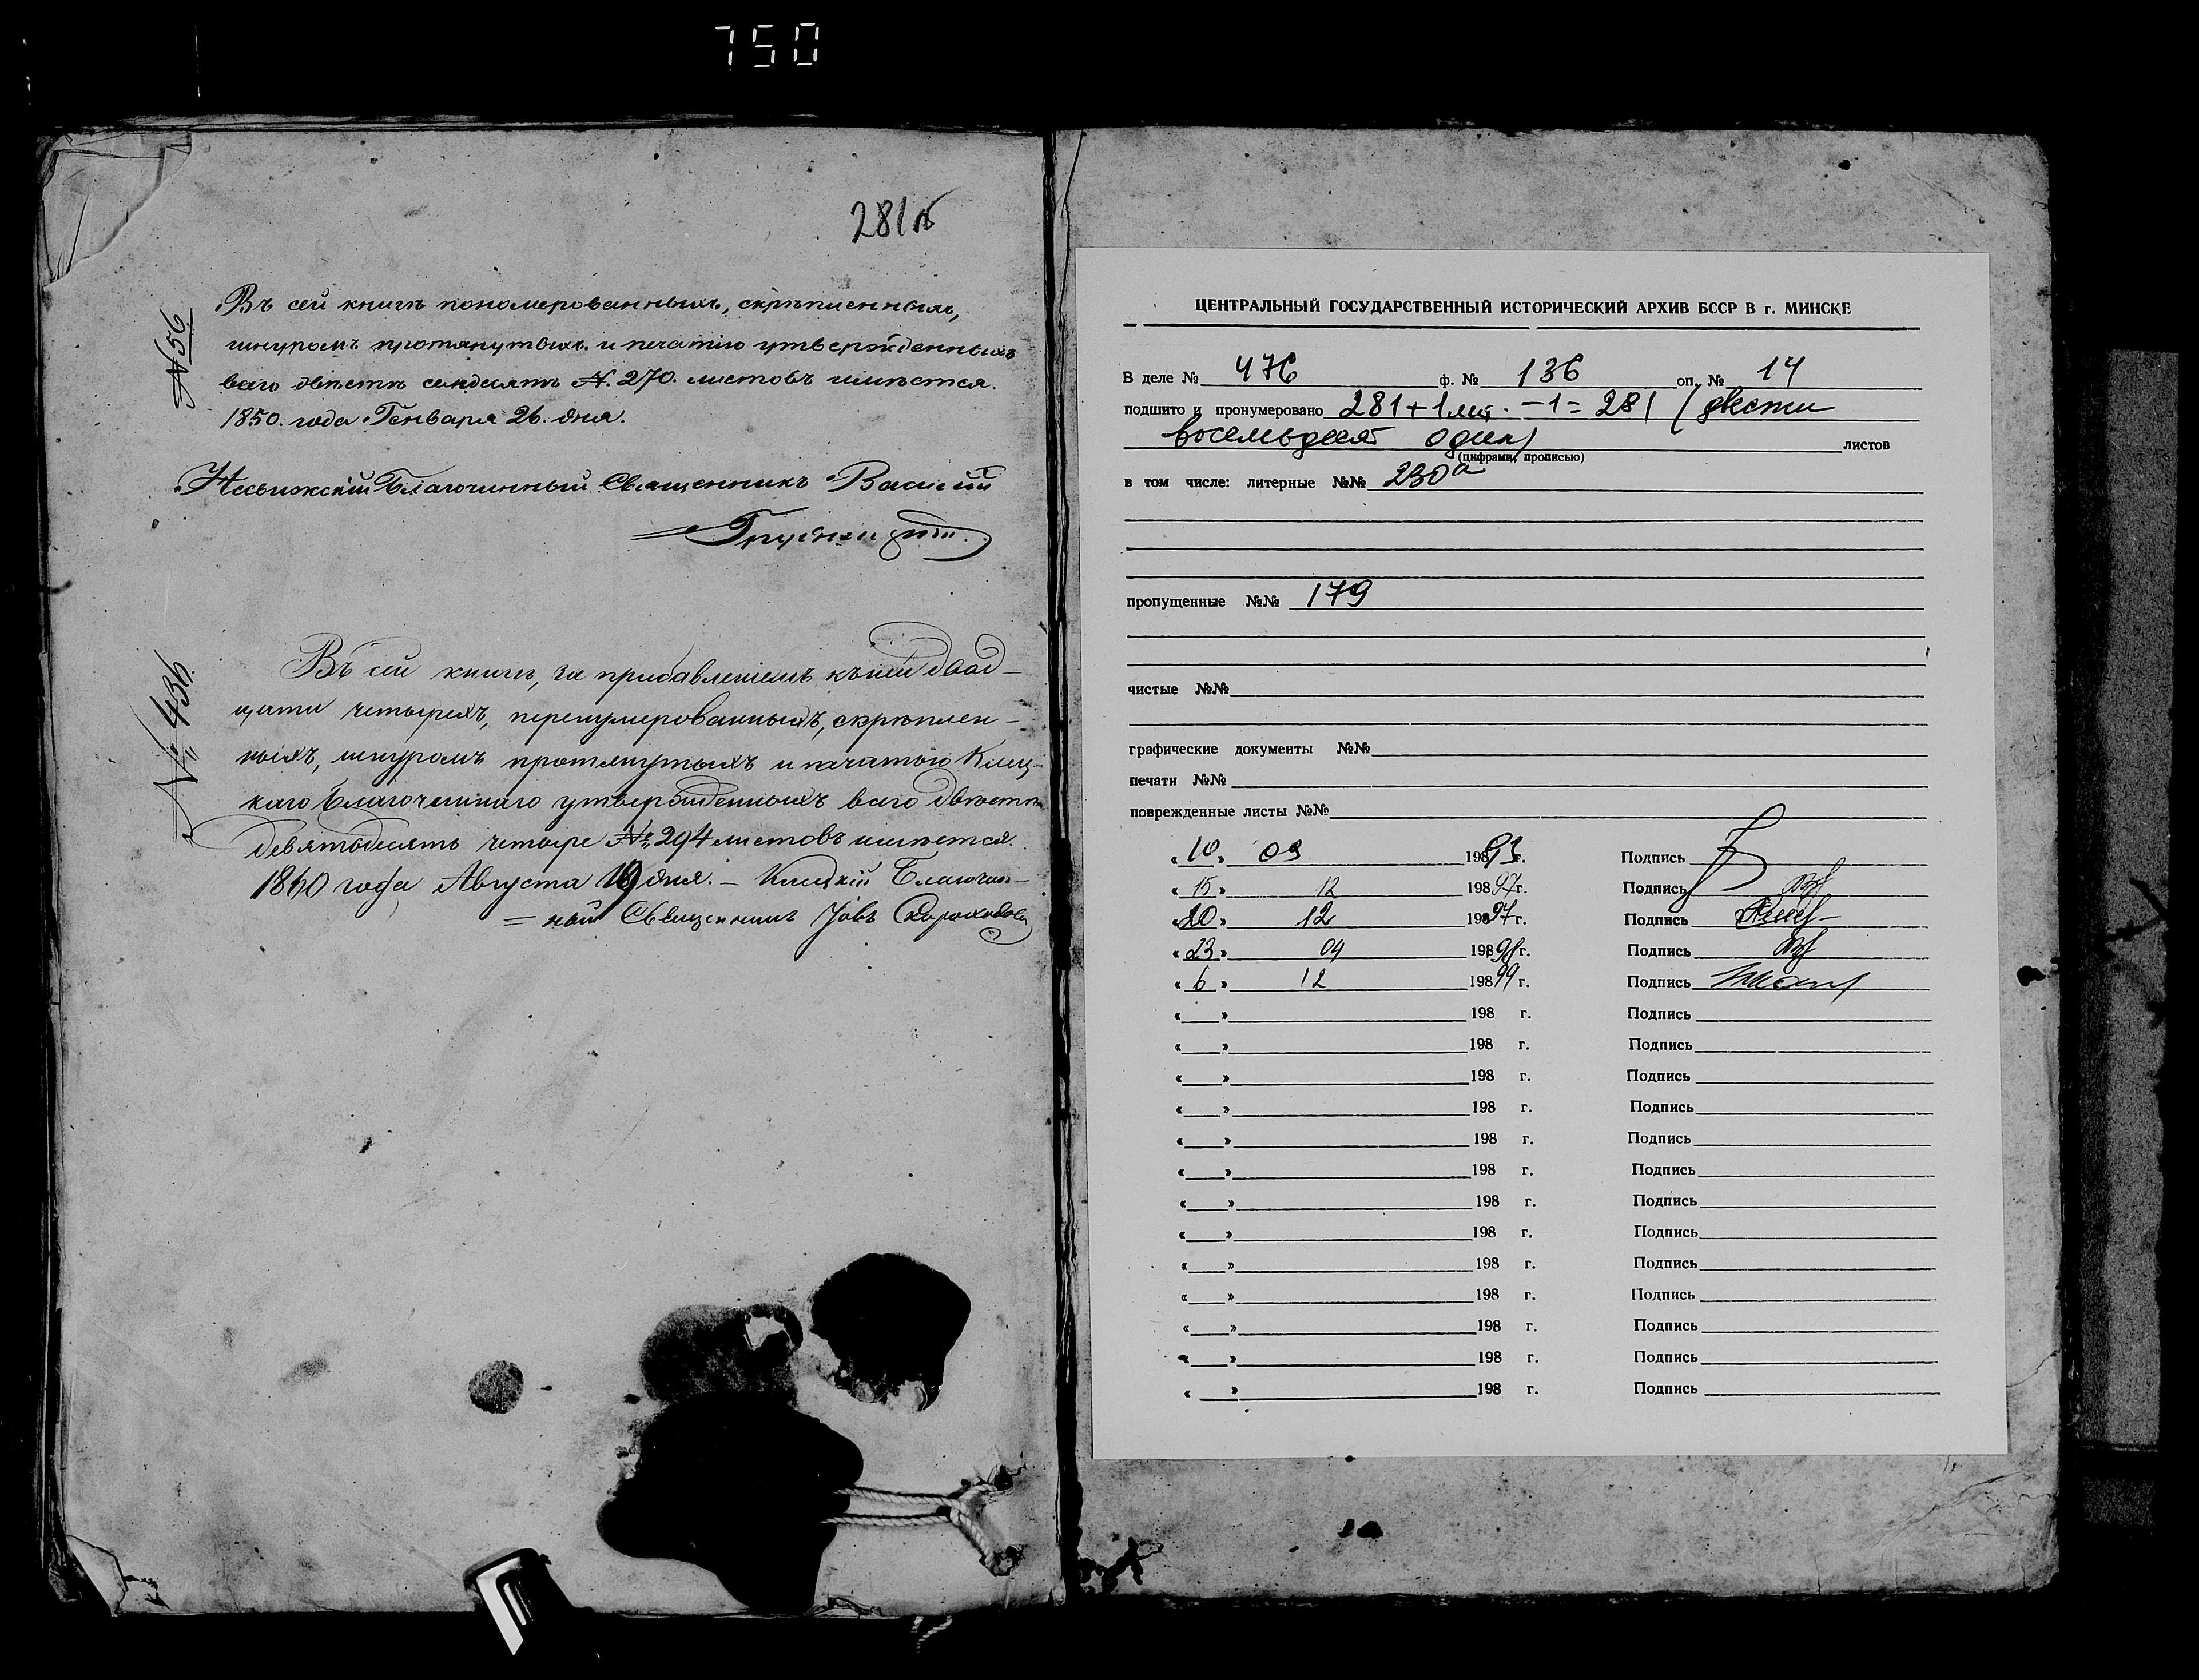 750
281 об
№ 56
Въ сей книгѣ пономерованныхъ, скрѣпленныхъ,
шнуромъ протянутыхъ и печатію утвержденныхъ
всего двѣсти семдесять №. 270. листовъ имѣется.
1850. года Генваря 26. дня.
Несвижскій Благочинный Священникъ Василій
№ 436
Въ сей книгѣ, за прибавленіемъ къ ней двад-
цати четырехъ, перенумерованныхъ, скрѣплен-
ныхъ, шнуромъ протянутыхъ и печатью Клец-
каго Благочиннаго утвержденныхъ всего двѣсти
девятьдесять четыре № 294 листовъ имѣется.
1860 года Августа 19 дня. – Клецкій Благочин-
= ный Священникъ Іовъ
ЦЕНТРАЛЬНЫЙ ГОСУДАРСТВЕННЫЙ ИСТОРИЧЕСКИЙ АРХИВ БССР В г. МИНСКЕ
В деле № 476 ф. № 136 оп. № 14
подшито и пронумеровано 281+1 лит. –1= 281 (двести
восемьдесят один) листов
(цифрами, прописью)
в том числе: литерные №№ 230а
пропущенные №№ 179
чистые №№
графические документы №№
печати №№
поврежденные листы №№
« 10 » 09 19893г. Подпись
« 15 » 12 19897г. Подпись
« 20 » 12 19897г. Подпись
« 23 » 04 19898г. Подпись
« 6 » 12 19899г. Подпись
« » 198 г. Подпись
« » 198 г. Подпись
« » 198 г. Подпись
« » 198 г. Подпись
« » 198 г. Подпись
« » 198 г. Подпись
« » 198 г. Подпись
« » 198 г. Подпись
« » 198 г. Подпись
« » 198 г. Подпись
« » 198 г. Подпись
« » 198 г. Подпись
« » 198 г. Подпись